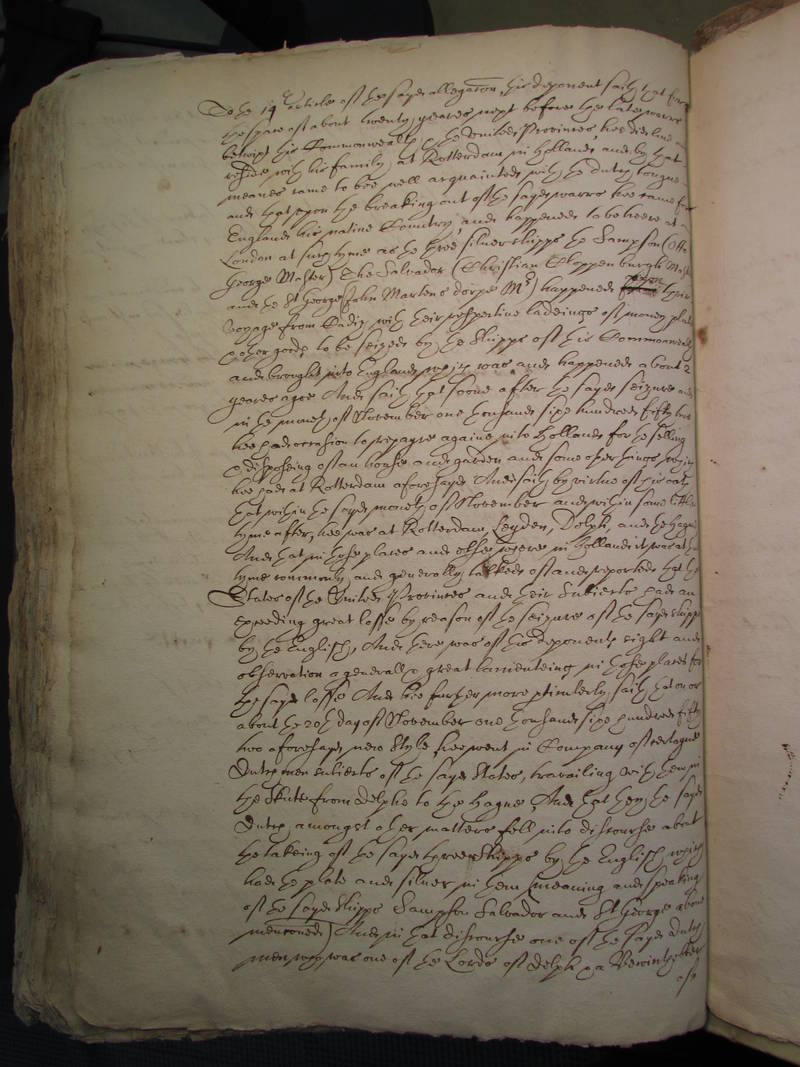 To the 14th Article of the sayd allegation this deponent saith that for
the space of about twenty yeares next before the late warrs
betwixt this Commonwealth & the United Provinces, hee did live and
reside with his family at Rotterdam in Holland and by that
meanes came to bee well acquainted with the dutch tongue
and that upon the breaking out of the sayd warrs hee came for
England his native Countrey, and happened to be heere at
London at such tyme as the three silver shipps the Sampson (Otto
George Master) The Salvador (Christian Cloppenburgh Master
and the St George (John Martens dorpe Mr) happened upon their
voyage from Cadiz with their respective ladeings of money plate
& other goods to be seized by the Shipps of this Commonwealth
and brought into England, which was and happened about 2
yeares agoe And saith that soone after the sayd seizure and
in the moneth of November one thousand sixe hundred fifty two
hee had occasion to repayre againe into Holland for the selling
& disposeing of an house and garden and some other things which
hee had at Rotterdam aforesayd And saith by virtue of his oath
that within the sayd moneth of November and within some little
tyme after, hee was at Rotterdam, Leyden, Delph, and the Hague
And that in those places and else where in Holland it was at that
tyme commonly and generally talked of and reported that the
States of the United Provinces and their Subiects had an
exceeding great losse by reason of the seizure of the sayd shipps
by the English, And there was of this deponents sight and
observation a generall & great lamenteing in those places for
the sayd losse And hee further more perticularly saith that on or
about the 20th day of November one thousand sixe hundred fifty
two aforesayd new Style hee went in Company of certayne
Dutch men subiects of the sayd States, travailing with them in
the Skute from Delph to the Hague, And that they the sayd
Dutch amongst other matters fell into discourse about
the takeing of the sayd three Shipps by the English, which
had the plate and silver in them (meaning and speaking
of the sayd Shipps Sampson Salvador and St George above
mentioned) And in that discourse one of the sayd Dutch
men who was one of the Lords of Delph
of